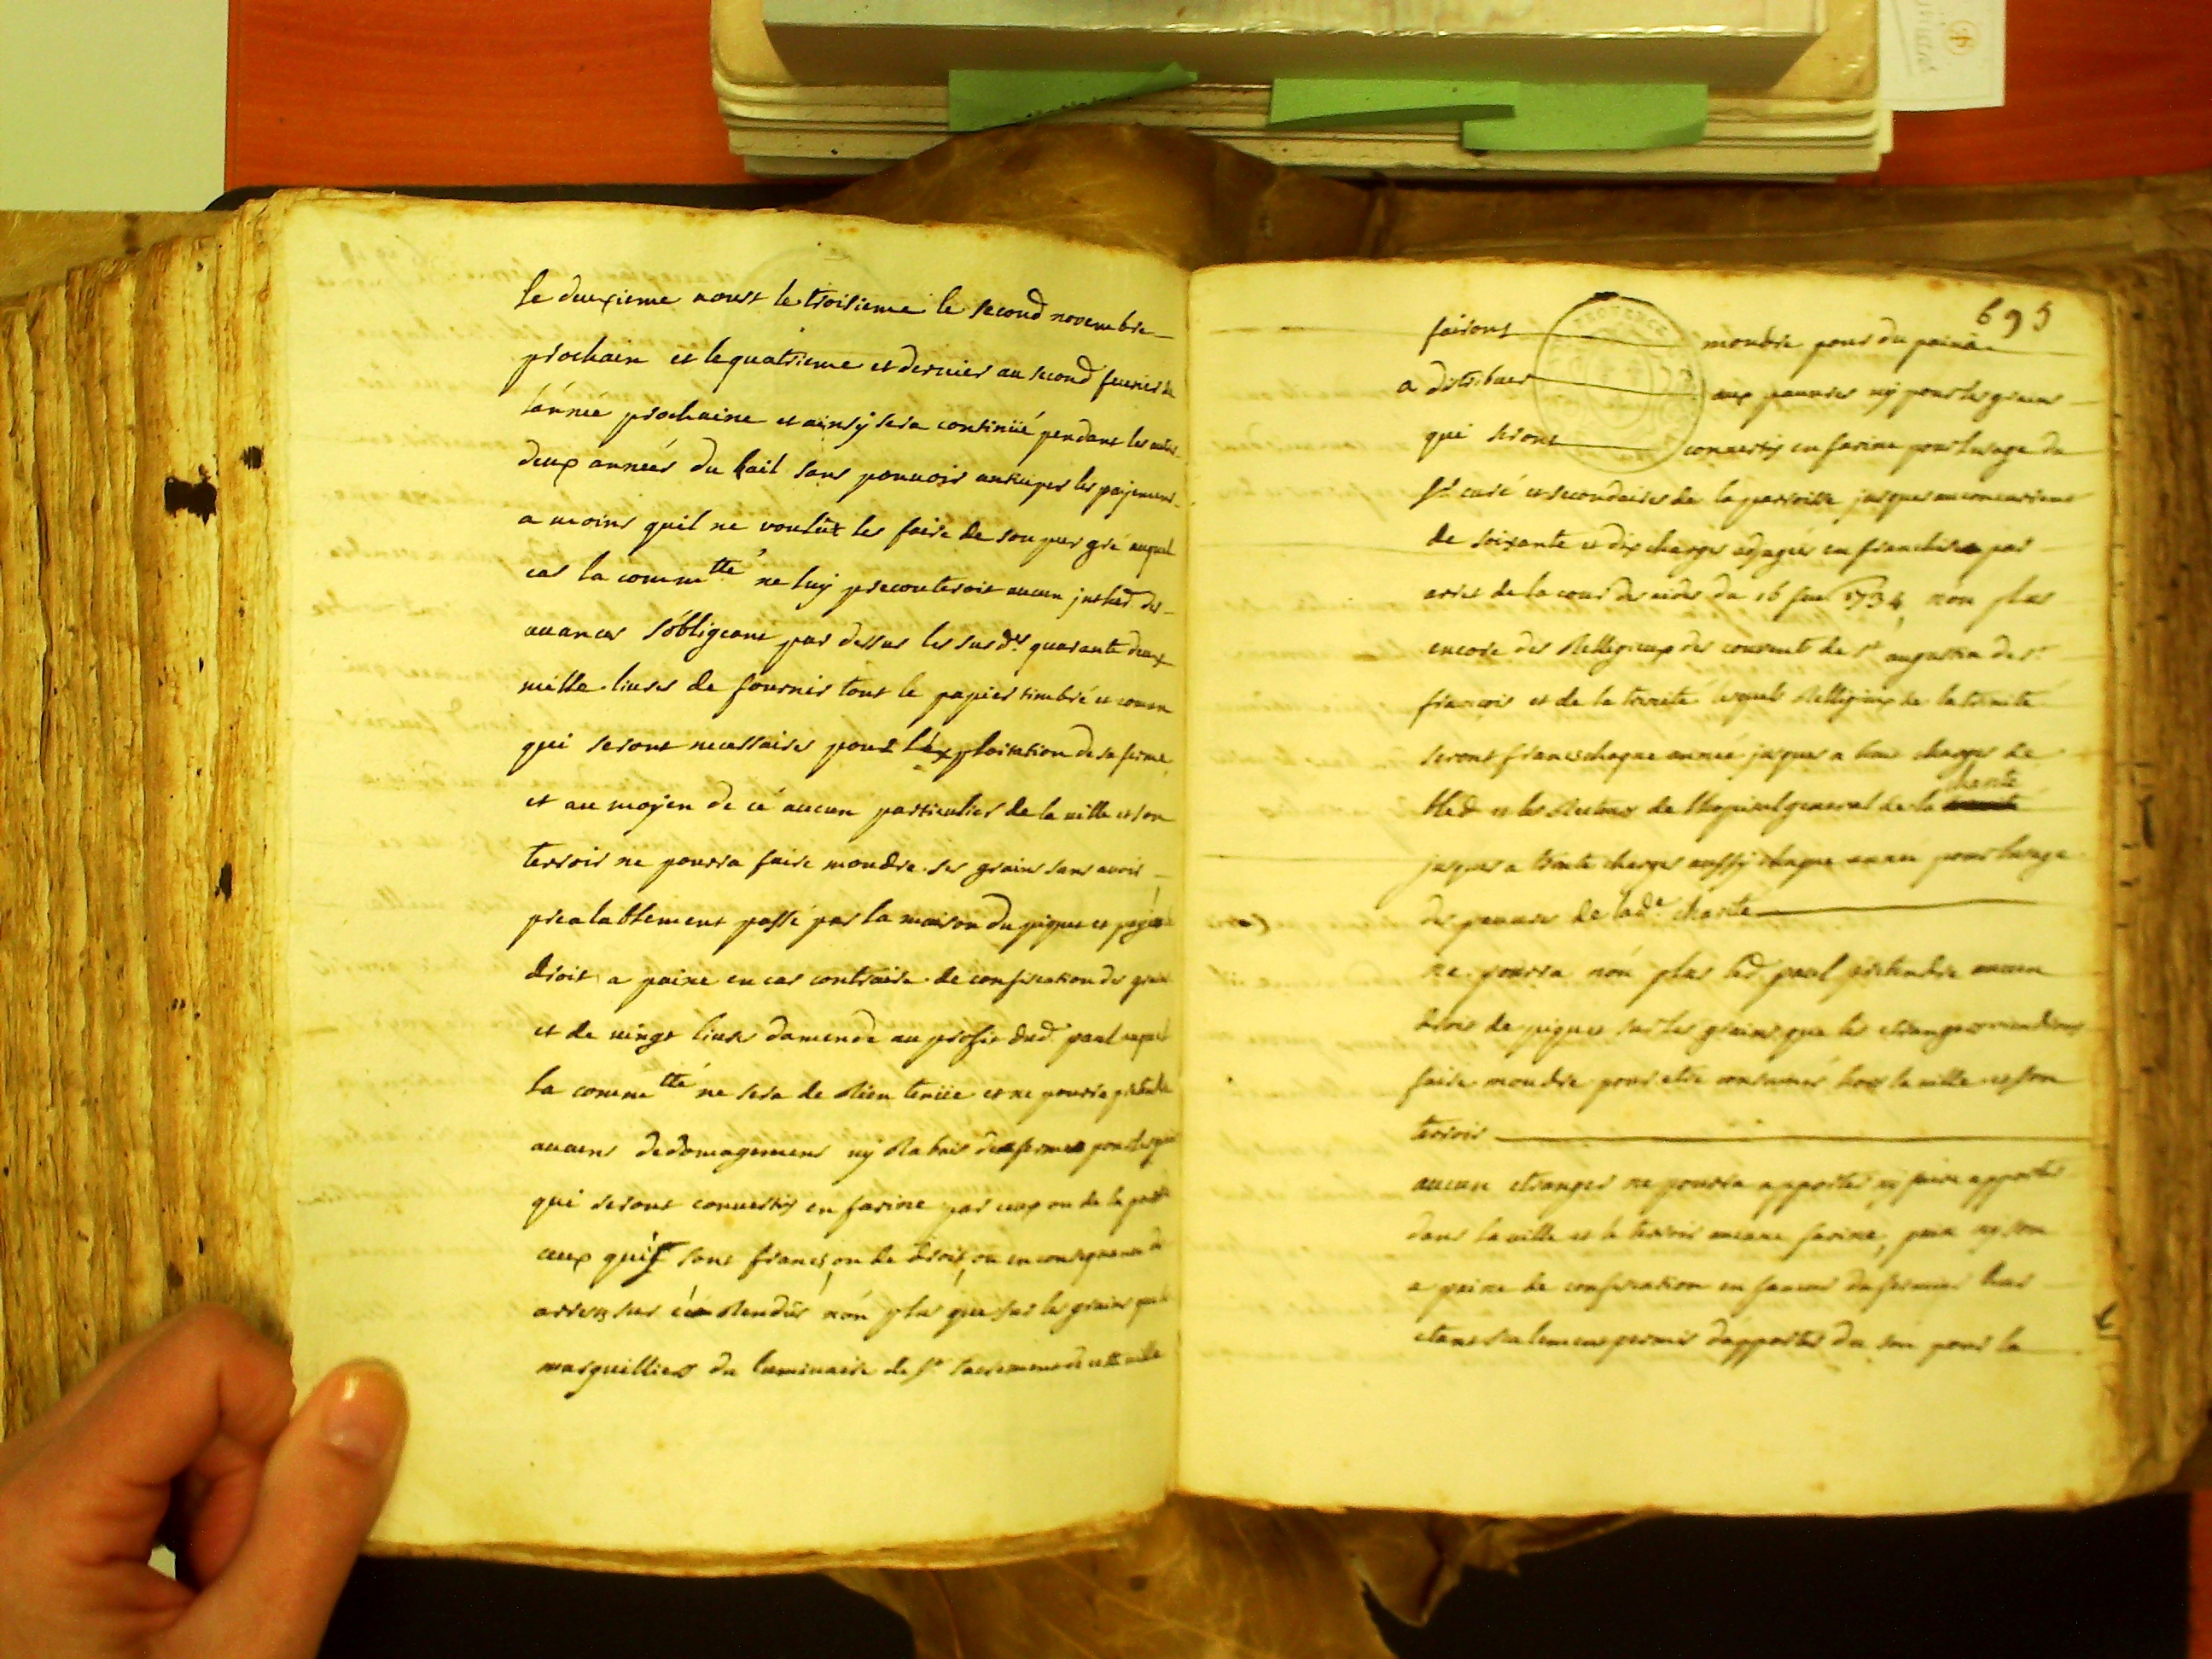 le deuxieme aoust le troisieme le second novembre
prochain et le quatrieme et dernier au second feuvrier de
lánnée prochaine et ainsÿ sera continüé pendant les autres
deux années du bail sans pouvoir anticiper les payemens
a moins quil ne voulût les faire de son pur gré auquel
cas la commtté ne luÿ precouteroit aucun jnthd des
auances sóbligeant par dessus les susds quarante deux
mille liures de fournir tout le papier timbré et comun
qui seront necessaires pour l'exploitation de sa ferme
et au moÿen de cé aucun particulier de la uille et son
terroir ne pourra faire moudre ses grains sans avoir
prealablement passé par la maison du piquet et payé le
droit a peine en cas contraire de confiscation des grains
et de uingt liures damende au profit dud paul auquel
la commtté ne sera de Rien tenüe et ne pourra pretendre
aucuns dedomagemens nÿ Rabais de ferme pour les grains
qui seront conuertis en farine par ceux ou de la part de
ceux qui sont francs, ou de droit, ou en consequence de
arrets sur cé Rendûs nón plus que sur les grains que les
marguilliers du luminaire de St Sacrement de cette uille
695
fairont moudre pour du pain
a distribuer aux pauures nÿ pour les grains
qui seront conuertis en farine pour lusage du
Sr curé et secondaires de la parroisse jusques au concurrent
de soixante et dix charges adjugées en franchise par
arret de la cour des aides du 16 juin 1734, non plus
encore des Relligieux des couvents de St augustin de St
françois et de la trinité lesquels Relligieux de la trinité
seront francs chaque année jusques a huit charges de
bled et les Recteurs de lhopital general de la charité
jusques a trente charges aussÿ chaque année pour lusage
des pauures de lade charité
ne pourra nón plus led paul pretendre aucun
droit de piquet sur les grains que les etrangers uiendront
faire moudre pour etre consumés hors la uille et son
terroir
aucun etranger ne pourra apporter nÿ faire apporter
dans la uille et le terroir aucune farine, pain nÿ son
a peine de confiscation en faueur du fermier leur
etant seulement permis dapporter du son pour la